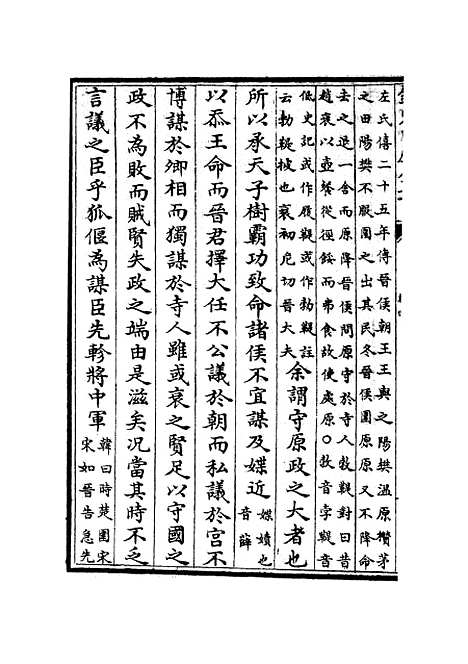 左氏僖二十五年傳晉侯朝王王與之陽樊溫原欑茅
之田陽樊不服圍之出其民冬晉侯圍原原又不降命
去之退一舍而原降晉侯問原守於寺人㪍鞮對曰昔
趙衰以壺餐從徑餒而弗食故使處原○㪍音孛鞮音
低史記或作履鞮或作勃鞮註
云勃鞮披也衰初危切晉大夫
余謂守原政之大者也
所以承天子樹霸功致命諸侯不宜謀及媟近
媟嬻也
音薛
以忝王命而晉君擇大任不公議於朝而私議於宮不
博謀於卿相而獨謀於寺人雖或衰之賢足以守國之
政不為敗而賊賢失政之端由是滋矣况當其時不乏
言議之臣乎狐偃為謀臣先軫將中軍
韓曰時楚圍宋
宋如晉告急先